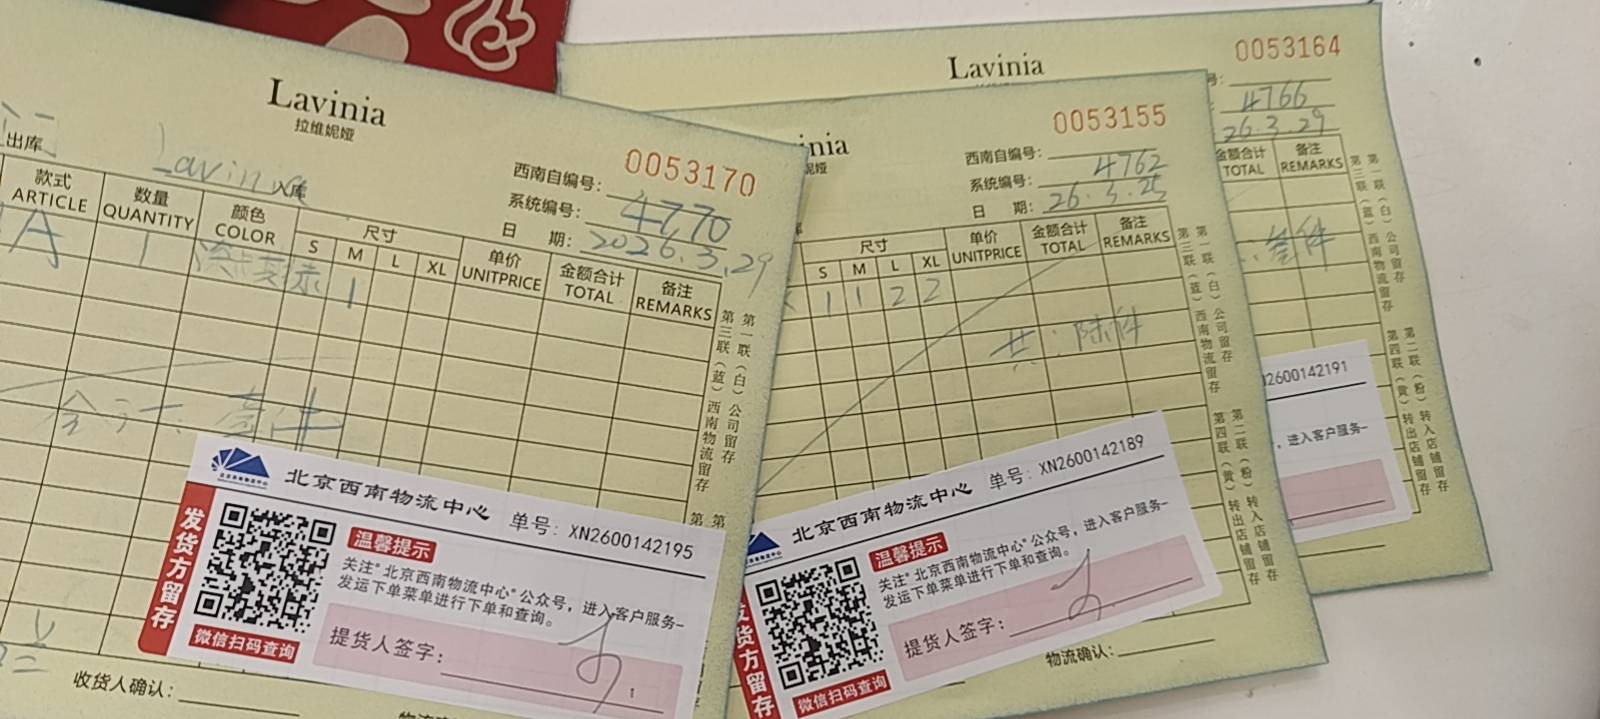 Lavinia
拉维妮娅
0053170
出库
Lavin
入库
西南自编号:
系统编号: 4770
日 期: 2026.3.29
款式 数量 颜色 尺寸 单价 金额合计 备注
ARTICLE QUANTITY COLOR S M L XL UNITPRICE TOTAL REMARKS
A 1 1
合计: 壹件
第一联(白)公司留存
第三联(蓝)西南物流留存
北京西南物流中心 单号: XN2600142195
发货方留存
温馨提示
关注"北京西南物流中心"公众号,进入客户服务-
发运下单菜单进行下单和查询。
微信扫码查询
提货人签字:
收货人确认:
inia
妮娅
0053155
西南自编号:
系统编号: 4762
日 期:
尺寸 单价 金额合计 备注
S M L XL UNITPRICE TOTAL REMARKS
1 1 2 2
共: 陆件
第一联(白)公司留存
第三联(蓝)西南物流留存
第二联(粉)转入店铺留存
第四联(黄)转出店铺留存
北京西南物流中心 单号: XN2600142189
发货方留存
温馨提示
关注"北京西南物流中心"公众号,进入客户服务-
发运下单菜单进行下单和查询。
微信扫码查询
提货人签字:
物流确认:
Lavinia
0053164
号:
4766
26.3.29
金额合计 备注
TOTAL REMARKS
: 壹件
第一联(白)公司留存
第三联(蓝)西南物流留存
第二联(粉)转入店铺留存
第四联(黄)转出店铺留存
N2600142191
,进入客户服务-